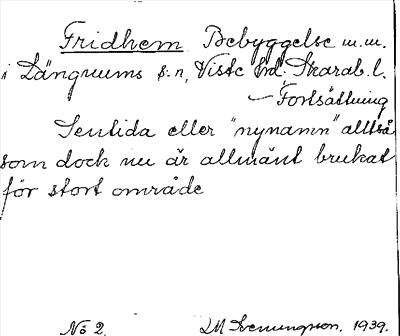 Fridhem Bebyggelse m.m.
i Längnums s:n, Viste hd. Skarab. l.
— Fortsättning
Sentida eller "nynamn" alltså
som dock nu är allmänt brukat
för stort område
No 2. LM Svenungsson. 1939.